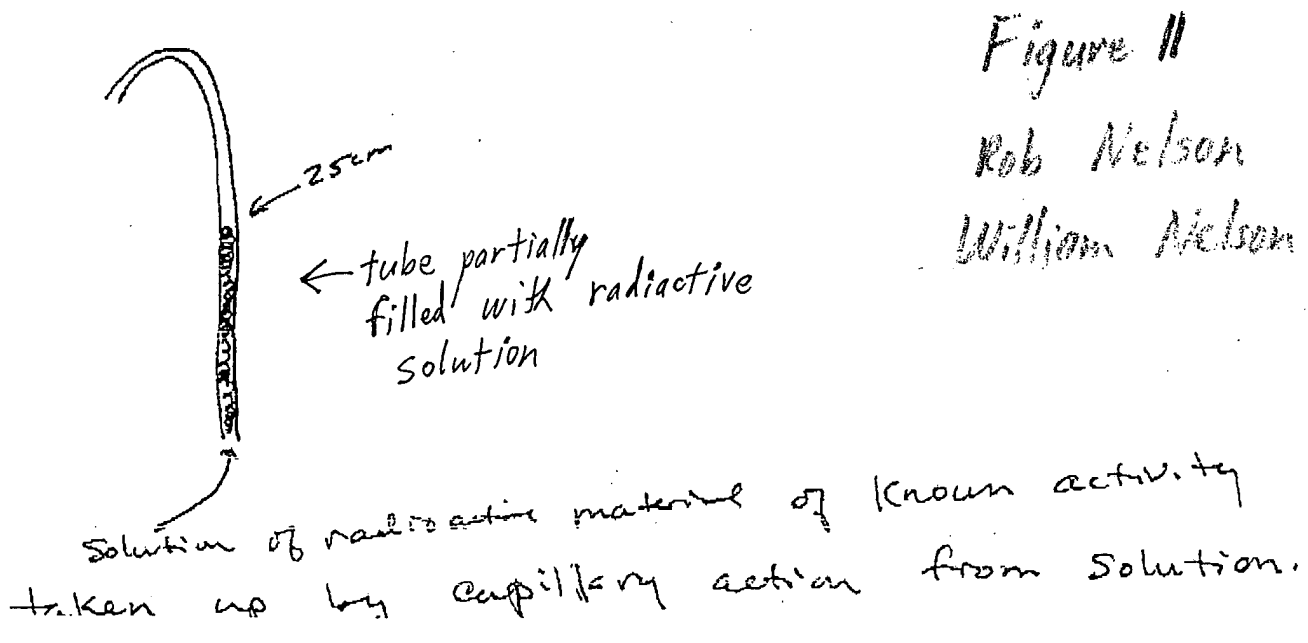 Figure 11
Rob Nelson
William Nelson
25cm
tube partially
filled with radiactive
solution
Solution of radioactive material of Known activity
taken up by capillary action from Solution.